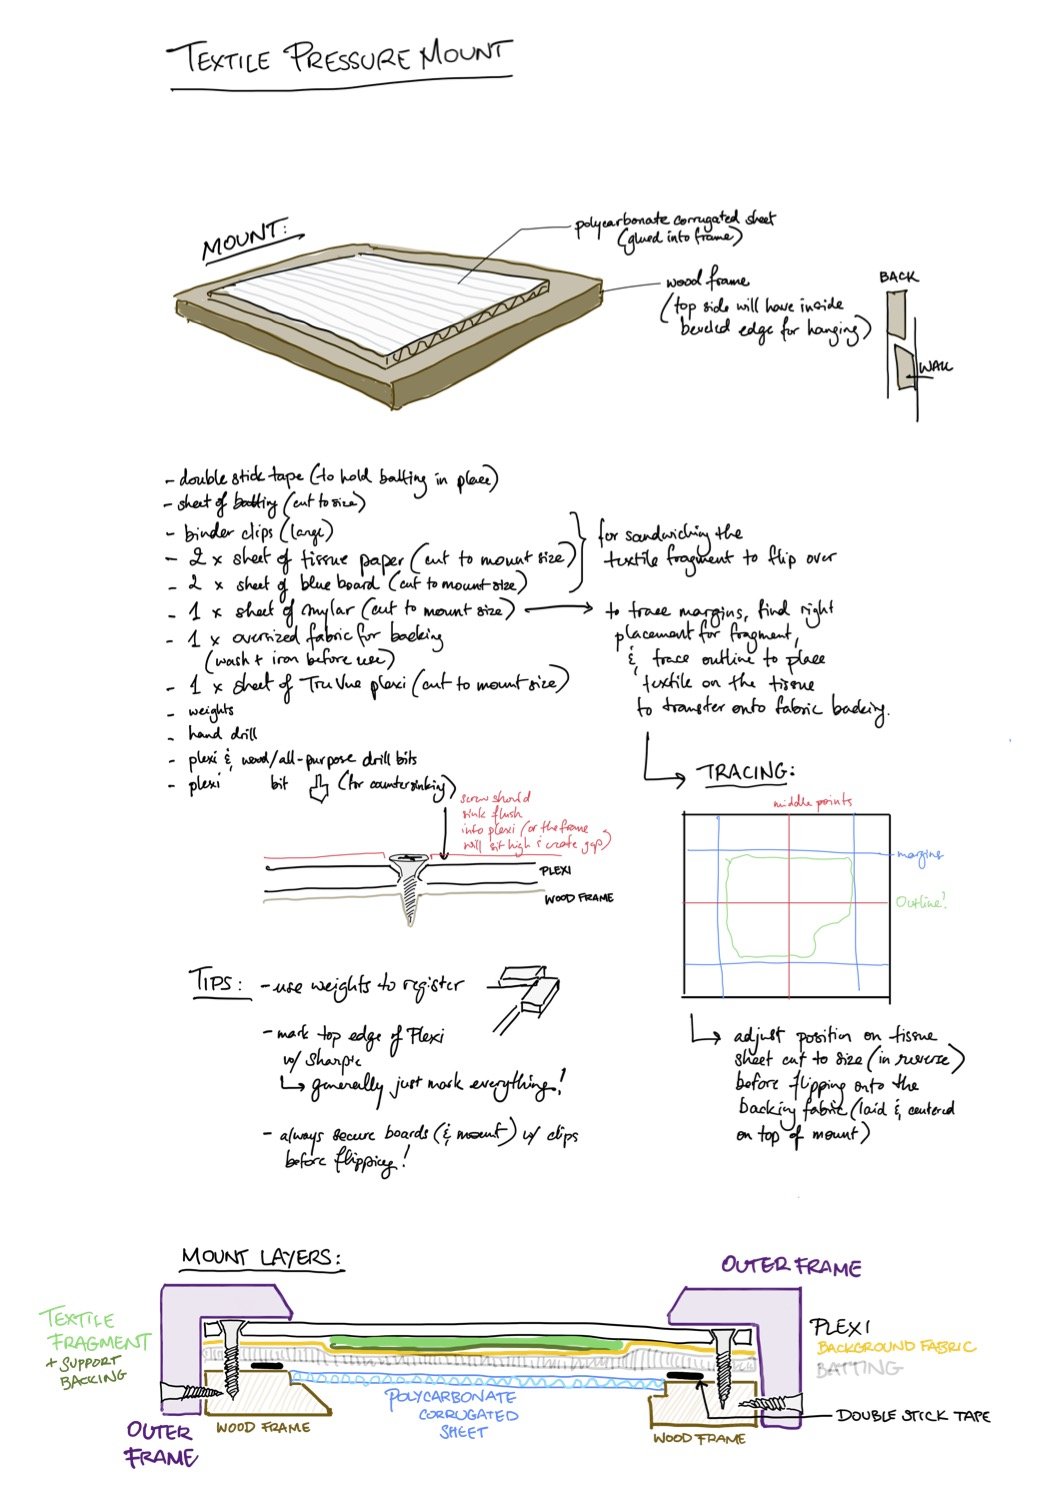 TEXTILE PRESSURE MOUNT
MOUNT:
polycarbonate corrugated sheet
(glued into frame)
wood frame
(top side will have inside
beveled edge for hanging)
BACK
WALL
- double stick tape (to hold batting in place)
- sheet of batting (cut to size)
- binder clips (large)
- 2 x sheet of tissue paper (cut to mount size)
- 2 x sheet of blue board (cut to mount size)
for sandwiching the
textile fragment to flip over
- 1 x sheet of mylar (cut to mount size)
to trace margins, find right
placement for fragment,
& trace outline to place
textile on the tissue
to transfer onto fabric backing.
- 1 x oversized fabric for backing
(wash + iron before use)
- 1 x sheet of Tru Vue plexi (cut to mount size)
- weights
- hand drill
- plexi & wood/all-purpose drill bits
- plexi bit (for countersinking)
screw should
sink flush
into plexi (or the frame
will sit high & create gap)
PLEXI
WOOD FRAME
TRACING:
middle points
margins
Outline!
adjust position on tissue
sheet cut to size (in reverse)
before flipping onto the
backing fabric (laid & centered
on top of mount)
TIPS: - use weights to register
- mark top edge of Plexi
w/ sharpie
generally just mark everything!
- always secure boards (& mount) w/ clips
before flipping!
MOUNT LAYERS:
OUTER FRAME
TEXTILE
FRAGMENT
+ SUPPORT
BACKING
PLEXI
BACKGROUND FABRIC
BATTING
DOUBLE STICK TAPE
POLYCARBONATE
CORRUGATED
SHEET
WOOD FRAME
WOOD FRAME
OUTER
FRAME